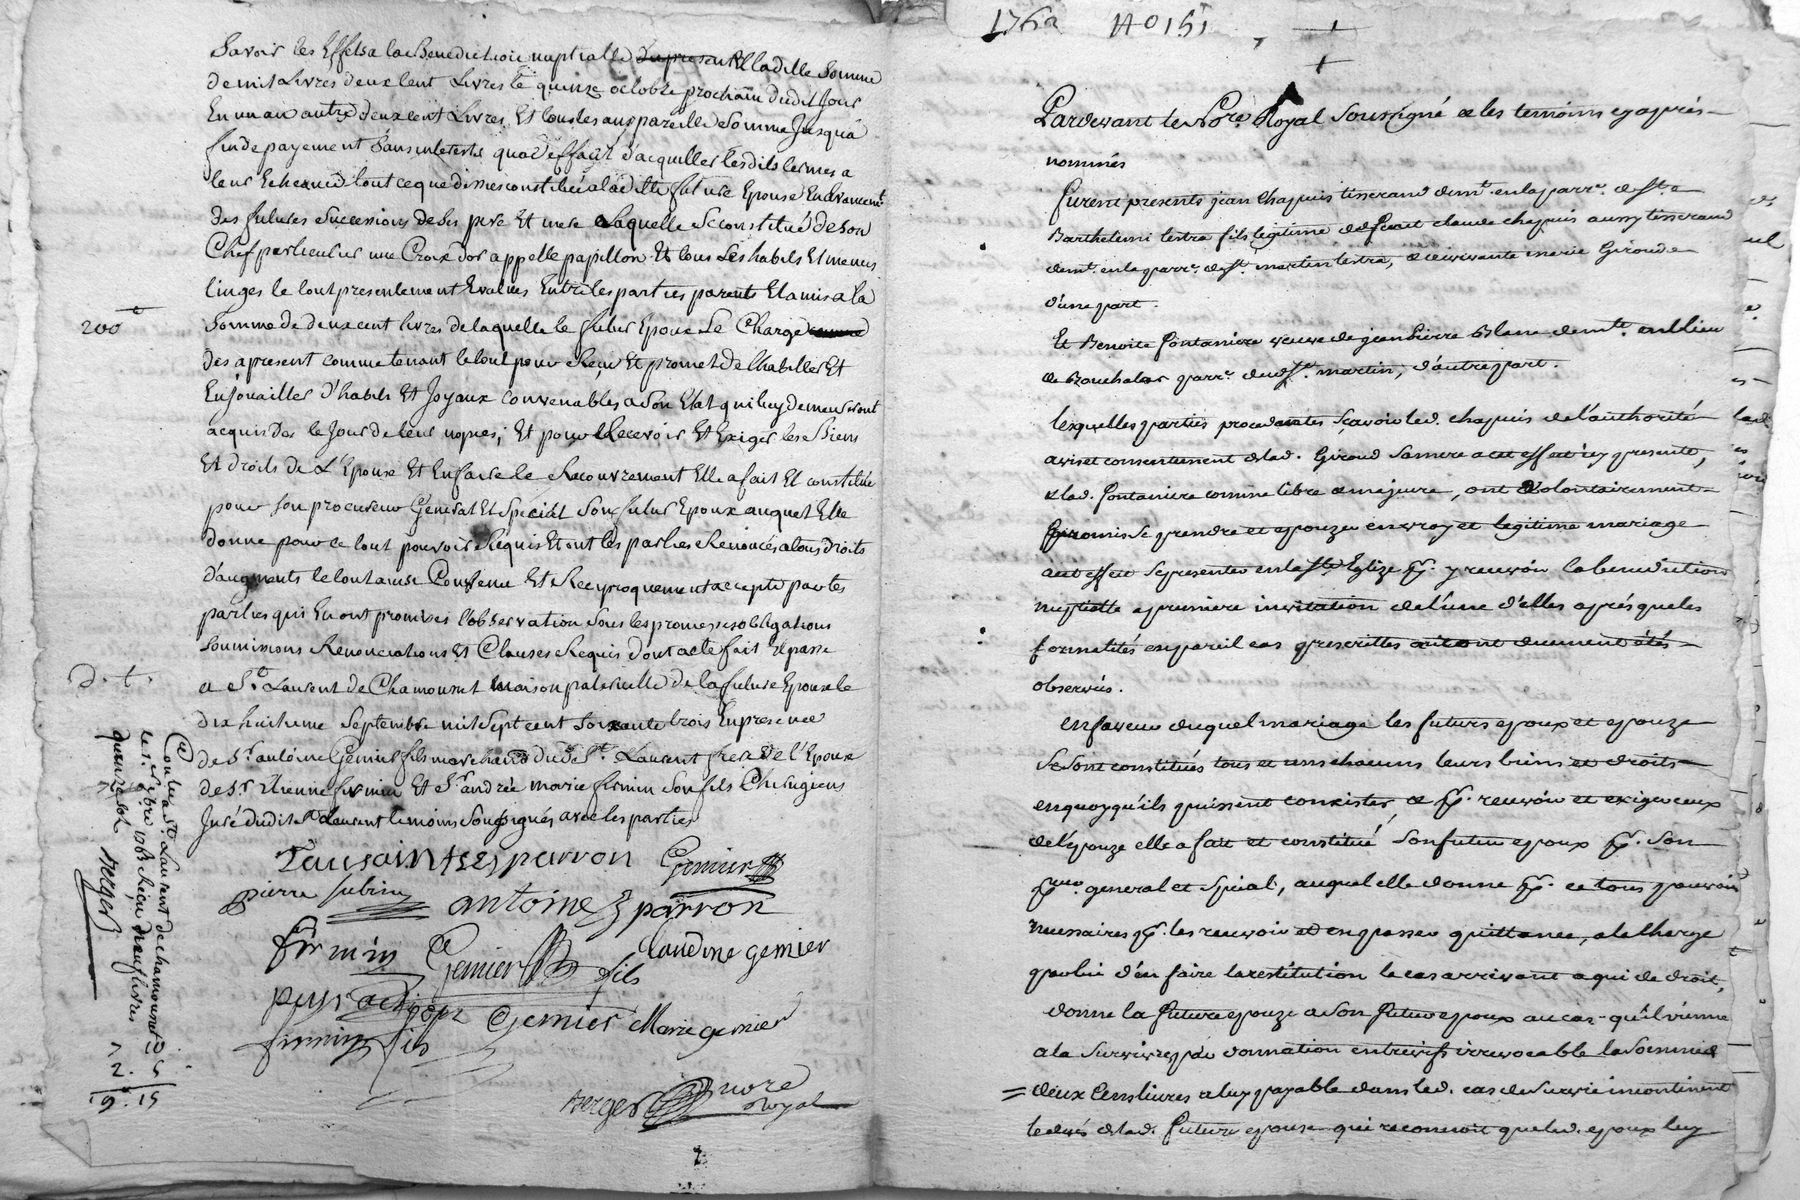 Savoir les Effets a la Benediction nuptialle da present Et ladille Somme
de mil Livres deux Cent Livres le quinze octobre prochain dudit Jour
En un an autre deux cent Livres Et tous les ans pareille Somme Jusqu'a
fin de payement Sans interests qua deffaut d'acquitter lesdits termes a
leur Echeance tout ce que dessus constitué a ladite future Epouse En avancemt
des futures Successions de Ses pere Et mere Laquelle Se constitue de Son
Chef particulier une Croix dor appellé papillon Et tous Ses habits Et menus
linges le tout presentement Evalués Entre les parties parents Et amis a la
200tt
Somme de deux cent livres de laquelle le futur Epoux Se Charge
des apresent comme tenant le tout pour Reçu Et promet de lhabiller Et
Enjouailler d'habits Et Joyaux convenables a Son Etat qui luy demeureront
acquis Des le Jour de leur nopces; Et pour Recevoir Et Exiger les Biens
Et droits de L'Epouse Et En faire le Recouvrement Elle a fait Et constitué
pour Son procureur General Et Special Son futur Epoux auquel Elle
donne pour ce tout pouvoir Requis Et ont les parties Renoncés a tous droits
d'augments le tout ainsi Convenu Et Reciproquement accepté par les
parties qui En ont promises l'observation Sous les promesses obligations
Soumissions Renonciations Et Clauses Requis dont acte fait Et passé
D. t.
a St Laurent de Chamousset maison paternelle de la future Epouse le
dix huitieme Septembre mil Sept cent Soixante trois En presence
de Sr antoine Gemier fils marchand dud St. Laurent frere de l'Epoux
de Sr Etienne firmin Et Sr andré marie firmin Son fils Chirugiens
Juré dudit St Laurent temoins Soussignés avec les parties
Toussaint parron Gemier
pierre Subrin antoine parron
firmin Gemier fils Claudine gemier
Gemier Marie gemier
firmin fils
Berger nore
Royal
Con. a St. Laurent de chamousset
le 1763 Reçu neuf livres
quinze sols Berger
7.
2.
9. 15
1762 No 151
Pardevant le Nore. Royal Soussigné & les temoins cy après
nommés
furent presents jean Chapuis tisserand demt. en la parre. de St.
Barthelemi lestra fils legitime de feu claude chapuis aussy tisserand
demt. en la parre. de St. martin lestra, & de vivante marie Giroud
d'une part.
Et Benoite fontaniere veuve de jean Pierre Blanc demte. au lieu
de parre. dud. St. martin, d'autre part.
lesquelles parties procedantes Sçavoir led. chapuis de l'authorité
avis et consentement de lad. Giroud Sa mere a cet effet icy presente,
& lad. fontaniere comme libre & majeure, ont volontairement
promis Se prendre et epouzer en vray et legitime mariage
a cet effet Se presenter en la Ste. Eglize pr. y recevoir la benediction
nuptialle a premiere invitation de l'une d'elles après que les
formalités en pareil cas prescrittes auront duement étés
observées.
En faveur duquel mariage les futurs epoux et epouze
Se Sont constitués tous et un chacuns leurs biens et droits
en quoy qu'ils puissent consister, & pr. recevoir et exiger ceux
de l'epouze elle a fait et constitué Son futur epoux pr. Son
preur. general et Spécial, auquel elle donne pr. ce tous pouvoirs
necessaires pr. les recevoir et en passer quittance, a la charge
par lui d'en faire la restitution le cas arrivant a qui de droit,
donne la future epouze a Son futur epoux au cas qu'il vienne
a la Survivre par donation entrevifs irrevocable la Somme de
= deux Cens livres a luy payable dans led. cas de Survie incontinent
le deces de lad. future epouse qui reconnoit que led. epoux luy